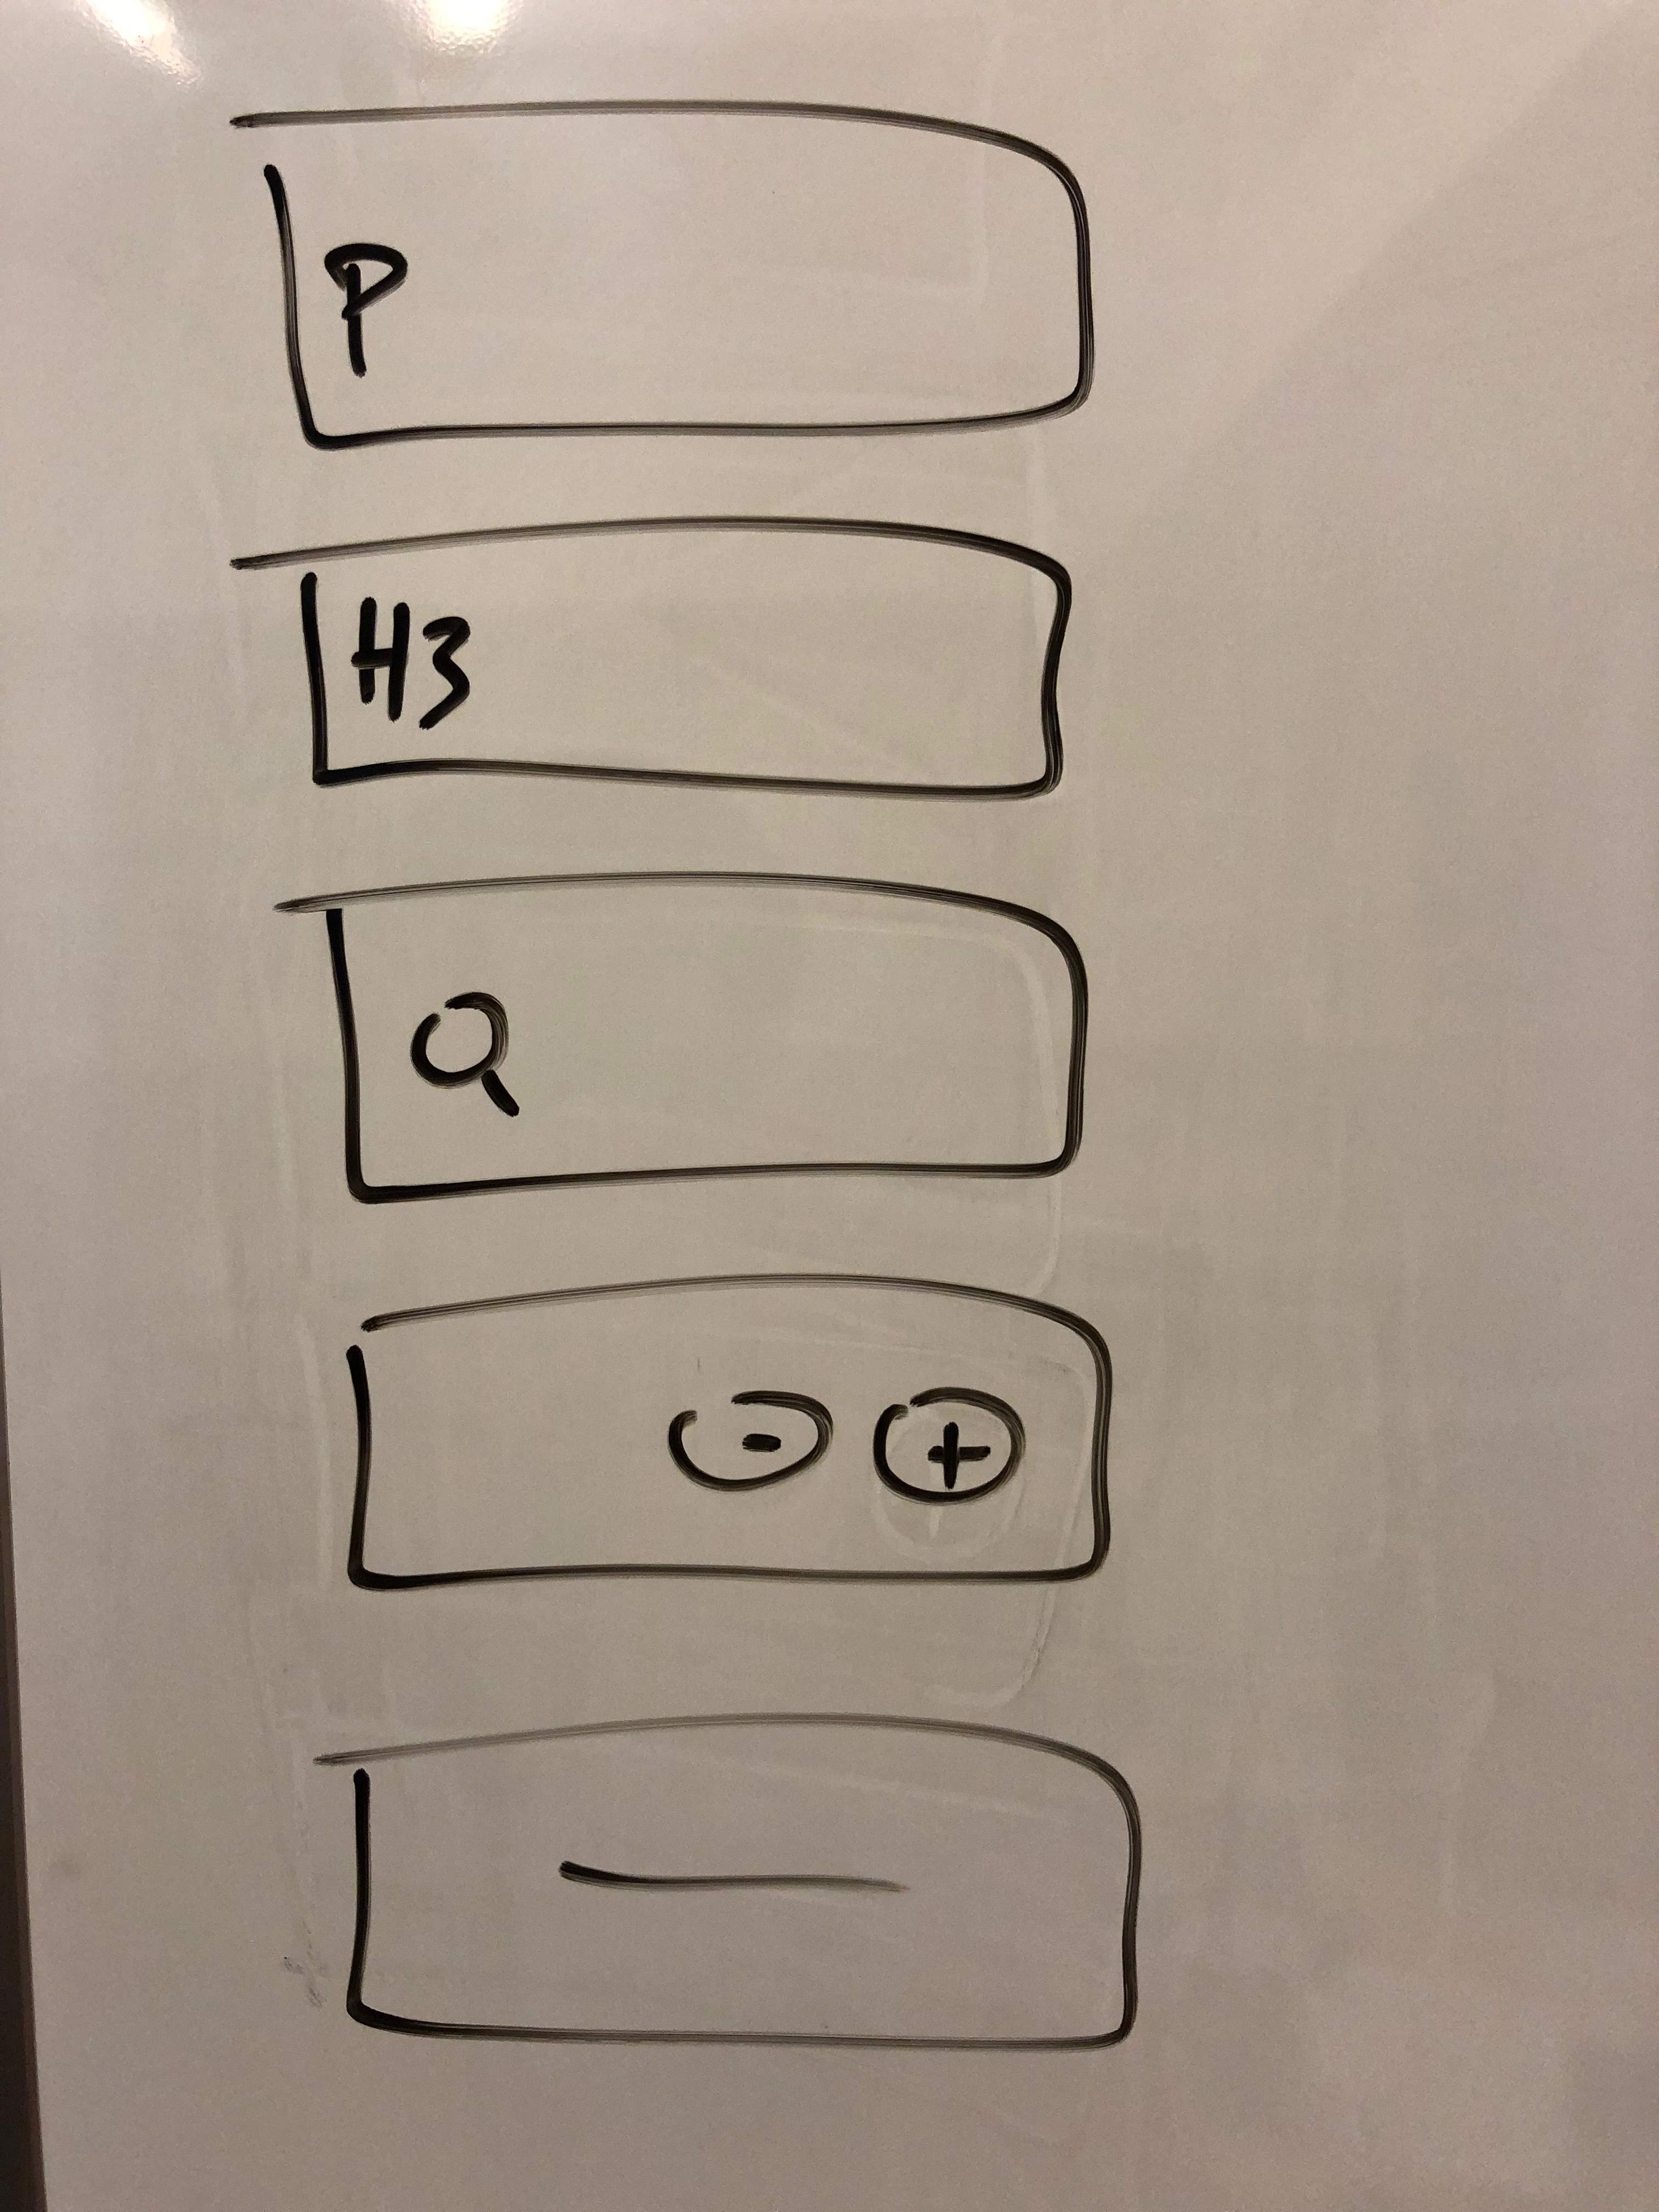 P
H3
Q
- +